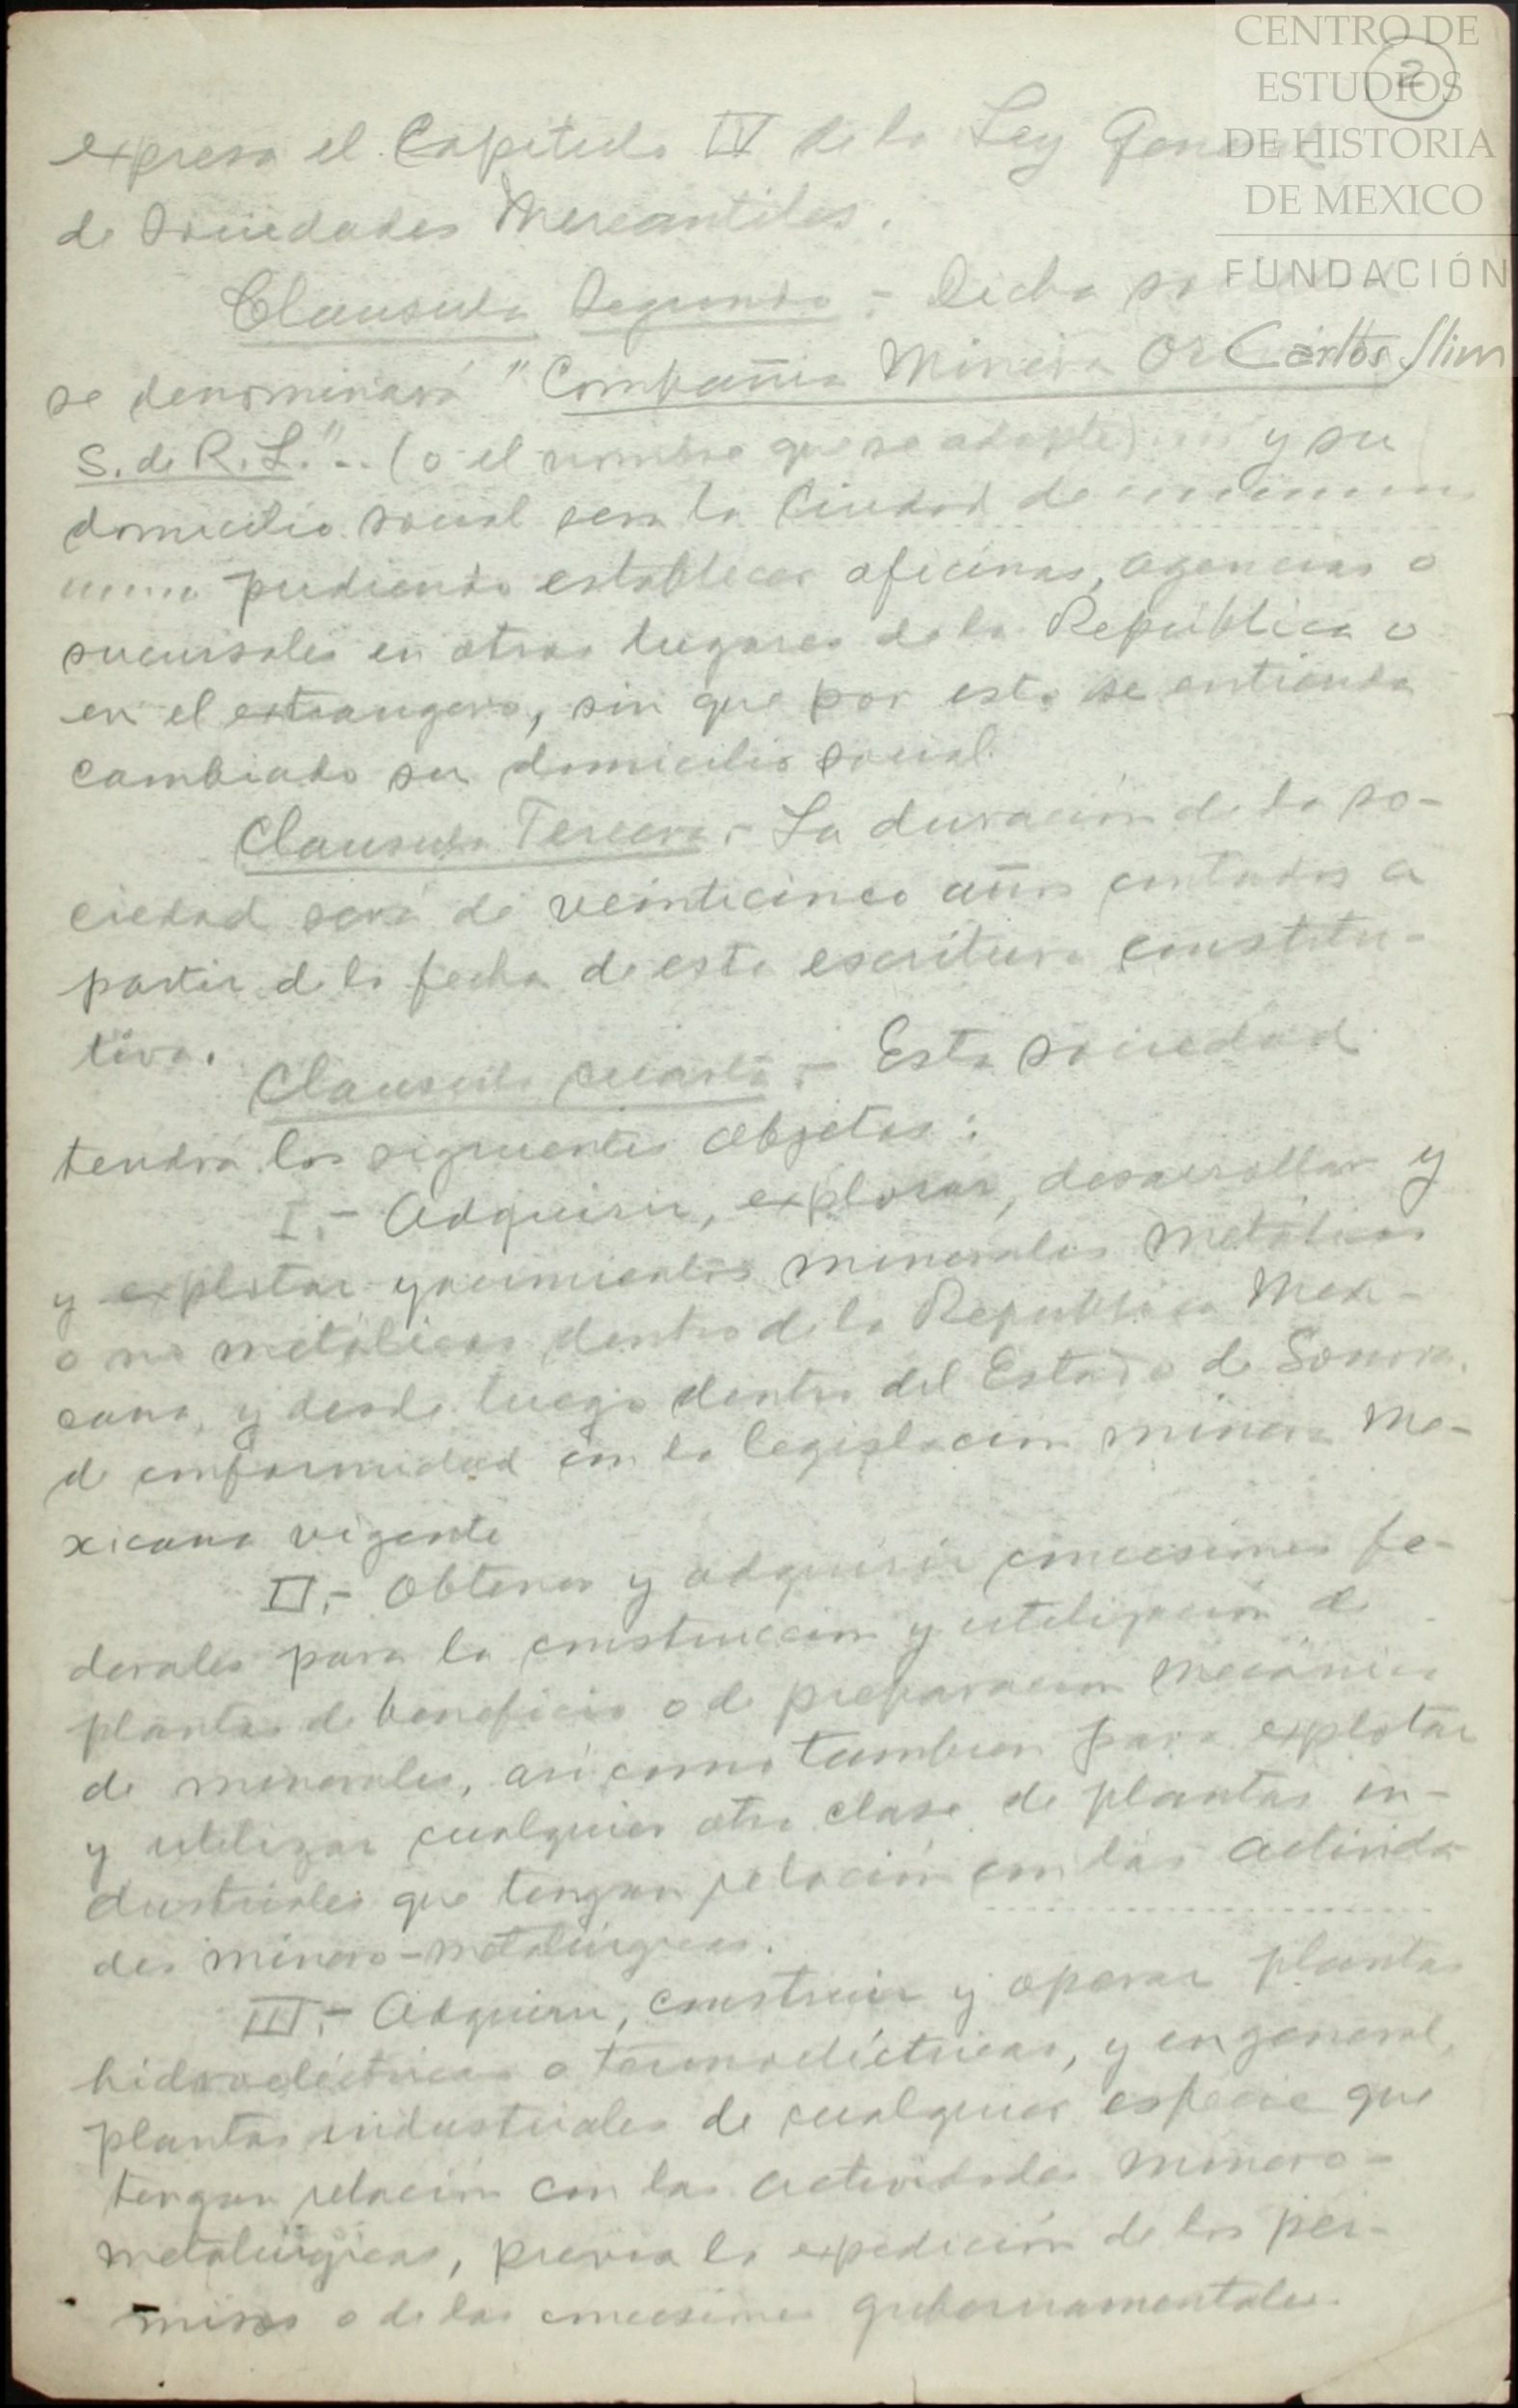 CENTRO DE
ESTUDIOS
DE HISTORIA
DE MEXICO
FUNDACIÓN
Carlos Slim
2
expresa el Capitulo IV de la Ley
de Sociedades Mercantiles.
Clausula Segunda.- Dicha
se denominará "Compañia Minera
S. de R. L." .- (o el nombre que se adopte) y su
domicilio social sera la Ciudad de
pudiendo establecer oficinas, agencias o
sucursales en otros lugares de la República o
en el extrangero, sin que por esto se entienda
cambiado su domicilio social.
Clausula Tercera.- La duración de la so-
ciedad será de veinticinco años contados a
partir de la fecha de esta escritura constitu-
tiva.
Clausula cuarta.- Esta sociedad
tendrá los siguientes objetos:
I.- Adquirir, explorar, desarrollar y
y explotar yacimientos minerales metálicos
o no metálicos dentro de la República Mexi-
cana, y desde luego dentro del Estado de Sonora,
de conformidad con la legislación minera Me-
xicana vigente
II.- Obtener y adquirir concesiones fe-
derales para la construcción y utilización de
plantas de beneficio o de preparacion mecánica
de minerales, asi como tambien para explotar
y utilizar cualquier otra clase de plantas in-
dustriales que tengan relación con las activida-
des minero-metalúrgicas.
III.- Adquirir, construir y operar plantas
hidroeléctricas o termoeléctricas, y en general,
plantas industriales de cualquier especie que
tengan relación con las actividades minero-
metalúrgicas, previa la expedición de los per-
misos o de las concesiones gubernamentales.